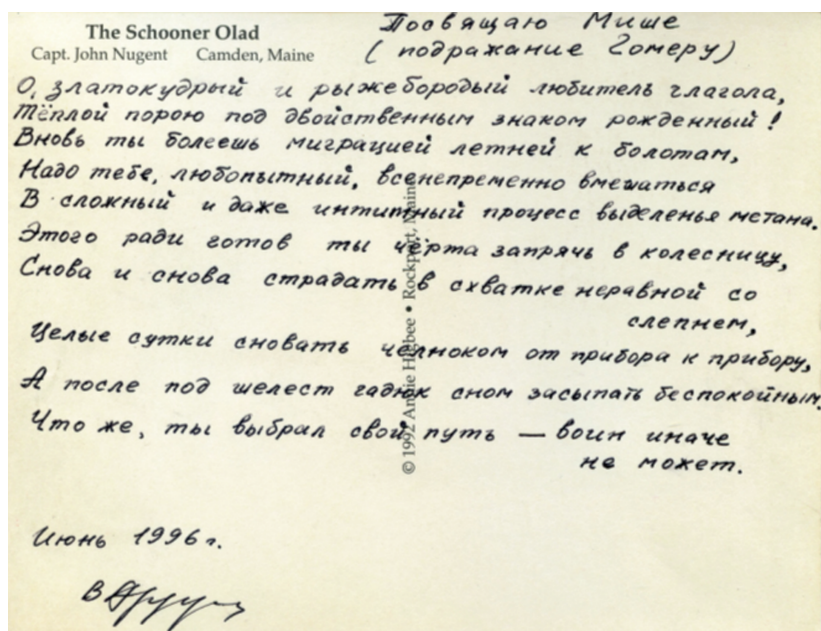 The Schooner Olad
Capt. John Nugent Camden, Maine
Посвящаю Мише
(подражание Гомеру)
О, златокудрый и рыжебородый любитель глагола,
Тёплой порою под двойственным знаком рожденный!
Вновь ты болеешь миграцией летней к болотам,
Надо тебе, любопытный, всенепременно вмешаться
В сложный и даже интимный процесс выделенья метана.
Этого ради готов ты чёрта запрячь в колесницу,
Снова и снова страдать в схватке неравной со
слепнем,
Целые сутки сновать челноком от прибора к прибору,
А после под шелест гадюк сном засыпать беспокойным.
Что же, ты выбрал свой путь — воин иначе
не может.
Июнь 1996 г.
© 1992 Annie Higbee • Rockport, Maine